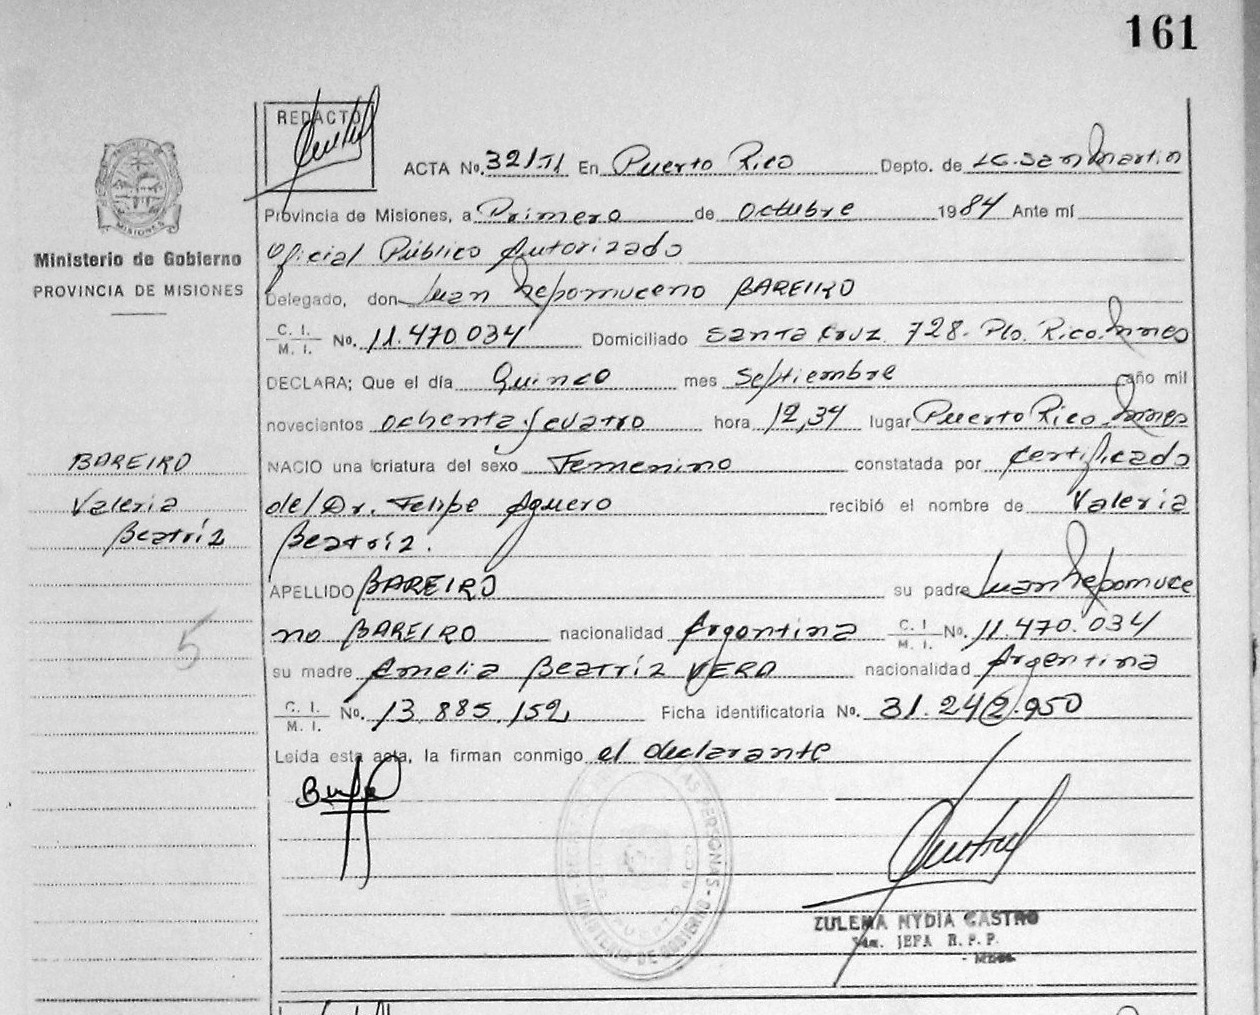 161
REDACTO
ACTA No. 321/II En Puerto Rico Depto. de LG. San Martin
Provincia de Misiones, a Primero de Octubre 1984 Ante mí
Oficial Público Autorizado
Delegado, don Juan Nepomuceno BAREIRO
C. I.
M. I. No. 11.470.034 Domiciliado Santa Cruz 728- Pto. Rico. Mnes
DECLARA; Que el día Quince mes Septiembre año mil
novecientos ochenta y cuatro hora 12,34 lugar Puerto Rico. Mnes
NACIO una criatura del sexo Femenino constatada por Certificado
del Dr. Felipe Aguero recibió el nombre de Valeria
Beatríz.
APELLIDO BAREIRO su padre Juan Nepomuce
no BAREIRO nacionalidad Argentina C. I
M. I. No. 11.470.034
su madre Amelia Beatríz VERA nacionalidad Argentina
C. I.
M. I. No. 13.885.152 Ficha identificatoria No. 31.242.950
Leída esta acta, la firman conmigo el declarante
Ministerio de Gobierno
PROVINCIA DE MISIONES
MISIONES
BAREIRO
Valeria
Beatríz
5
LAS PERSONAS
MINISTERIO DE GOBIERNO
ZULEMA NYDIA CASTRO
JEFA R. P. P.